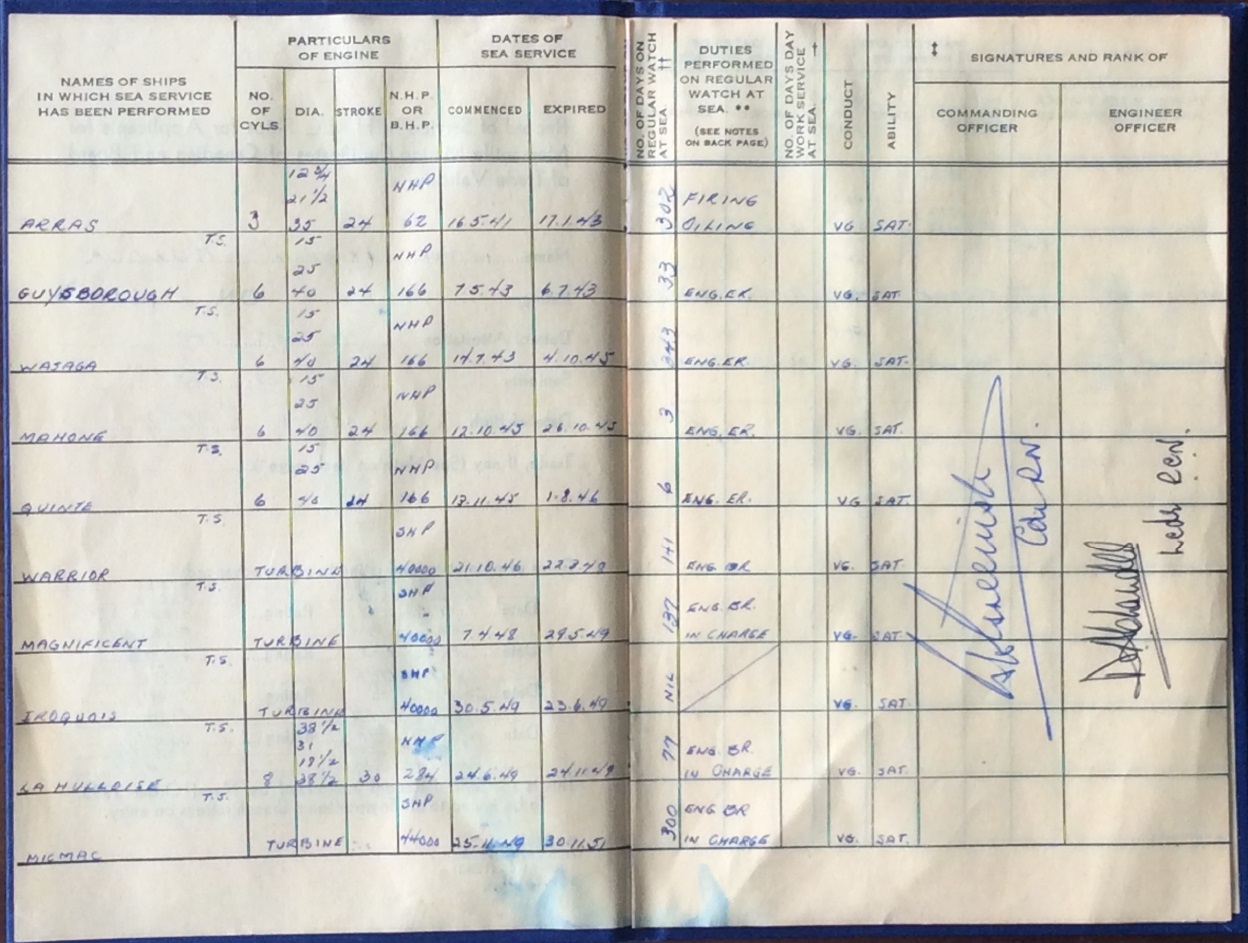 NAMES OF SHIPS
IN WHICH SEA SERVICE
HAS BEEN PERFORMED
PARTICULARS
OF ENGINE
NO.
OF
CYLS.
DIA.
STROKE
N.H.P.
OR
B.H.P.
DATES OF
SEA SERVICE
COMMENCED
EXPIRED
NO. OF DAYS ON
REGULAR WATCH
AT SEA ††
DUTIES
PERFORMED
ON REGULAR
WATCH AT
SEA. **
(SEE NOTES
ON BACK PAGE)
NO. OF DAYS DAY
WORK SERVICE
AT SEA. †
CONDUCT
ABILITY
‡
SIGNATURES AND RANK OF
COMMANDING
OFFICER
ENGINEER
OFFICER
12 3/4
21 1/2 NHP FIRING
ARRAS 3 35 24 62 16.5.41 17.1.43 302 OILING VG SAT.
T.S. 15
25 NHP
GUYSBOROUGH 6 40 24 166 7.5.43 6.7.43 33 ENG.ER. VG. SAT
T.S. 15
25 NHP
WASAGA 6 40 24 166 14.7.43 4.10.45 343 ENG.ER. VG. SAT.
T.S. 15
25 NHP
MAHONE 6 40 24 166 12.10.45 26.10.45 3 ENG.ER. VG. SAT.
T.S. 15
25 NHP
QUINTE 6 40 24 166 13.11.45 1.8.46 6 ENG. ER. VG SAT.
T.S. SHP
WARRIOR TURBINE 40000 21.10.46 141 ENG BR VG. SAT.
T.S. SHP ENG. BR.
MAGNIFICENT TURBINE 40000 7.4.48 29.5.49 137 IN CHARGE VG. SAT.
T.S. SHP
IROQUOIS TURBINE 40000 30.5.49 23.6.49 NIL VG. SAT.
T.S. 38 1/2
31 NHP
19 1/2 ENG. BR.
LA HULLOISE 8 38 1/2 30 284 24.6.49 24.11.49 77 IN CHARGE VG. SAT.
T.S. SHP ENG BR
MICMAC TURBINE 44000 25.11.49 30.11.51 300 IN CHARGE VG. SAT.
Cdr. RN.
Lcdr RCN.